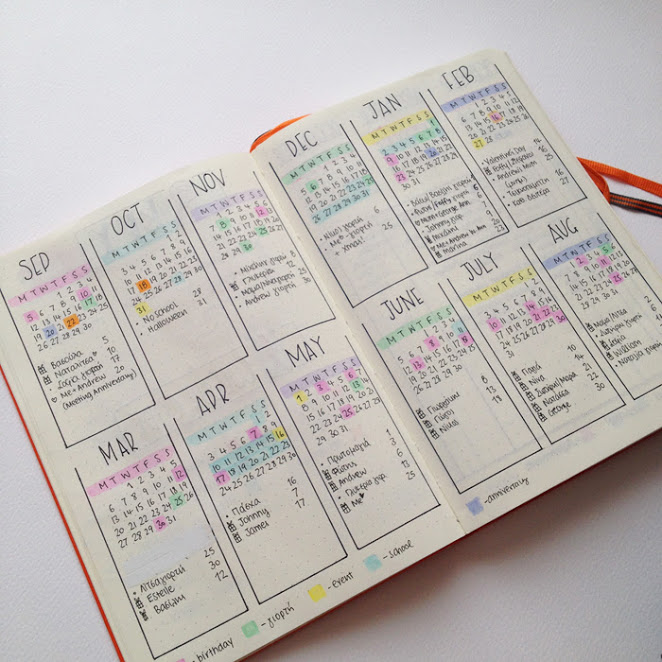 SEP
M T W T F S S
1 2 3 4
5 6 7 8 9 10 11
12 13 14 15 16 17 18
19 20 21 22 23 24 25
26 27 28 29 30
Βασούλα 5
Νατάλιτσα 10
Σοφία γιορτή 17
Me + Andrew 20
(Meeting Anniversary)
OCT
M T W T F S S
1 2
3 4 5 6 7 8 9
10 11 12 13 14 15 16
17 18 19 20 21 22 23
24 25 26 27 28 29 30
31
No school 28
Halloween 31
NOV
M T W T F S S
1 2 3 4 5 6
7 8 9 10 11 12 13
14 15 16 17 18 19 20
21 22 23 24 25 26 27
28 29 30
Γλυτερία
Andrew γιορτή 30
DEC
M T W T F S S
1 2 3 4
5 6 7 8 9 10 11
12 13 14 15 16 17 18
19 20 21 22 23 24 25
26 27 28 29 30 31
Νίκος γιορτή 6
Me γιορτή
Xmas 25
JAN
M T W T F S S
1
2 3 4 5 6 7 8
9 10 11 12 13 14 15
16 17 18 19 20 21 22
23 24 25 26 27 28 29
30 31
FEB
M T W T F S S
1 2 3 4 5
6 7 8 9 10 11 12
13 14 15 16 17 18 19
20 21 22 23 24 25 26
27 28
Valentines Day 14
Andrew's Mum
MAR
M T W T F S S
1 2 3 4 5
6 7 8 9 10 11 12
13 14 15 16 17 18 19
20 21 22 23 24 25 26
27 28 29 30 31
Λίτσα γιορτή 25
Estelle 30
Βασίλη 12
APR
M T W T F S S
1 2
3 4 5 6 7 8 9
10 11 12 13 14 15 16
17 18 19 20 21 22 23
24 25 26 27 28 29 30
Πάσχα 16
Johnny 7
James 17
MAY
M T W T F S S
1 2 3 4 5 6 7
8 9 10 11 12 13 14
15 16 17 18 19 20 21
22 23 24 25 26 27 28
29 30 31
Πρωτομαγιά 1
Φώτης 3
Andrew 6
Γλυτερία γιορ. 13
Me 25
JUNE
M T W T F S S
1 2 3 4
5 6 7 8 9 10 11
12 13 14 15 16 17 18
19 20 21 22 23 24 25
26 27 28 29 30
8
Γιώργος 13
Νίκος 18
JULY
M T W T F S S
1 2
3 4 5 6 7 8 9
10 11 12 13 14 15 16
17 18 19 20 21 22 23
24 25 26 27 28 29 30
31
Νίνα 14
Νατάσα 22
George 30
AUG
M T W T F S S
1 2 3 4 5 6
7 8 9 10 11 12 13
14 15 16 17 18 19 20
21 22 23 24 25 26 27
28 29 30 31
William
- birthday
- γιορτή
- event
- school
- anniversary